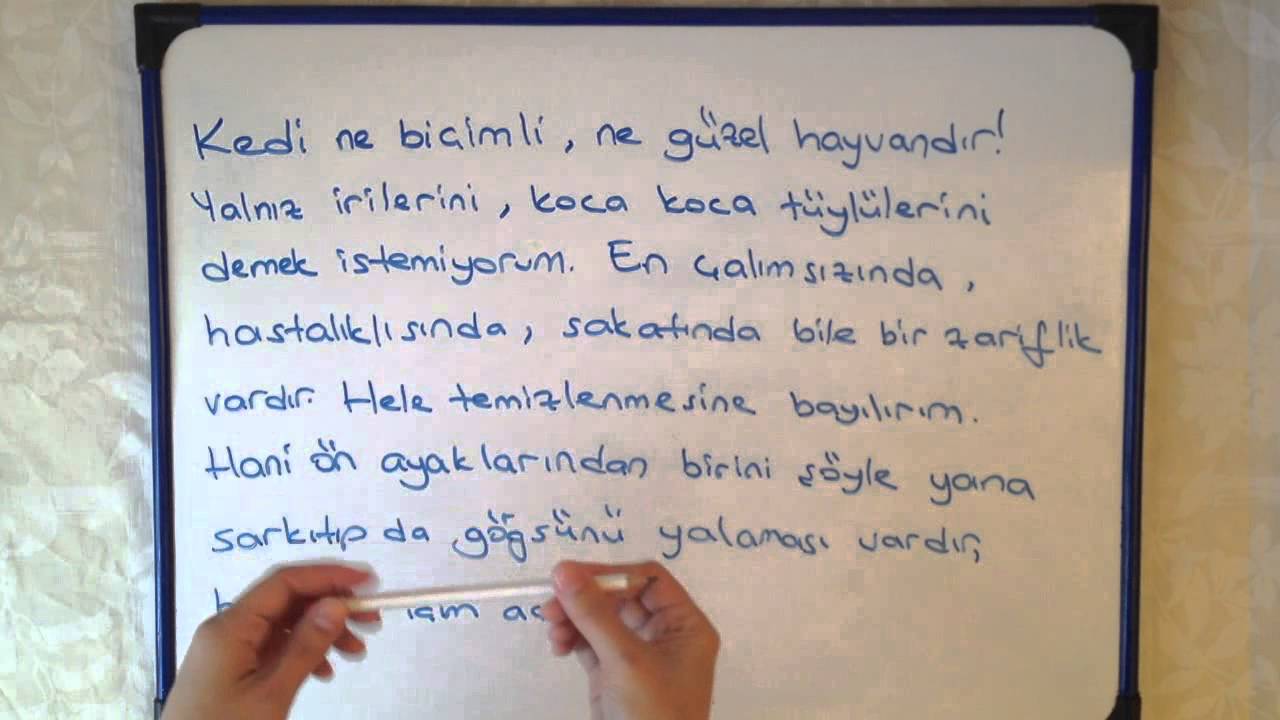 Kedi ne biçimli, ne güzel hayvandır!
Yalnız irilerini, koca koca tüylülerini
demek istemiyorum. En çalımsızında,
hastalıklısında, sakatında bile bir zariflik
vardır. Hele temizlenmesine bayılırım.
Hani ön ayaklarından birini şöyle yana
sarkıtıp da göğsünü yalaması vardır,